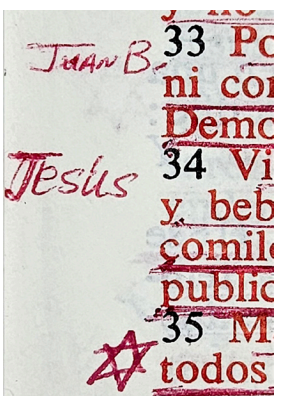 y no
Juan B. 33 Po
ni con
Demo
Jesús 34 Vi
y beb
comilo
public
35 M
todos